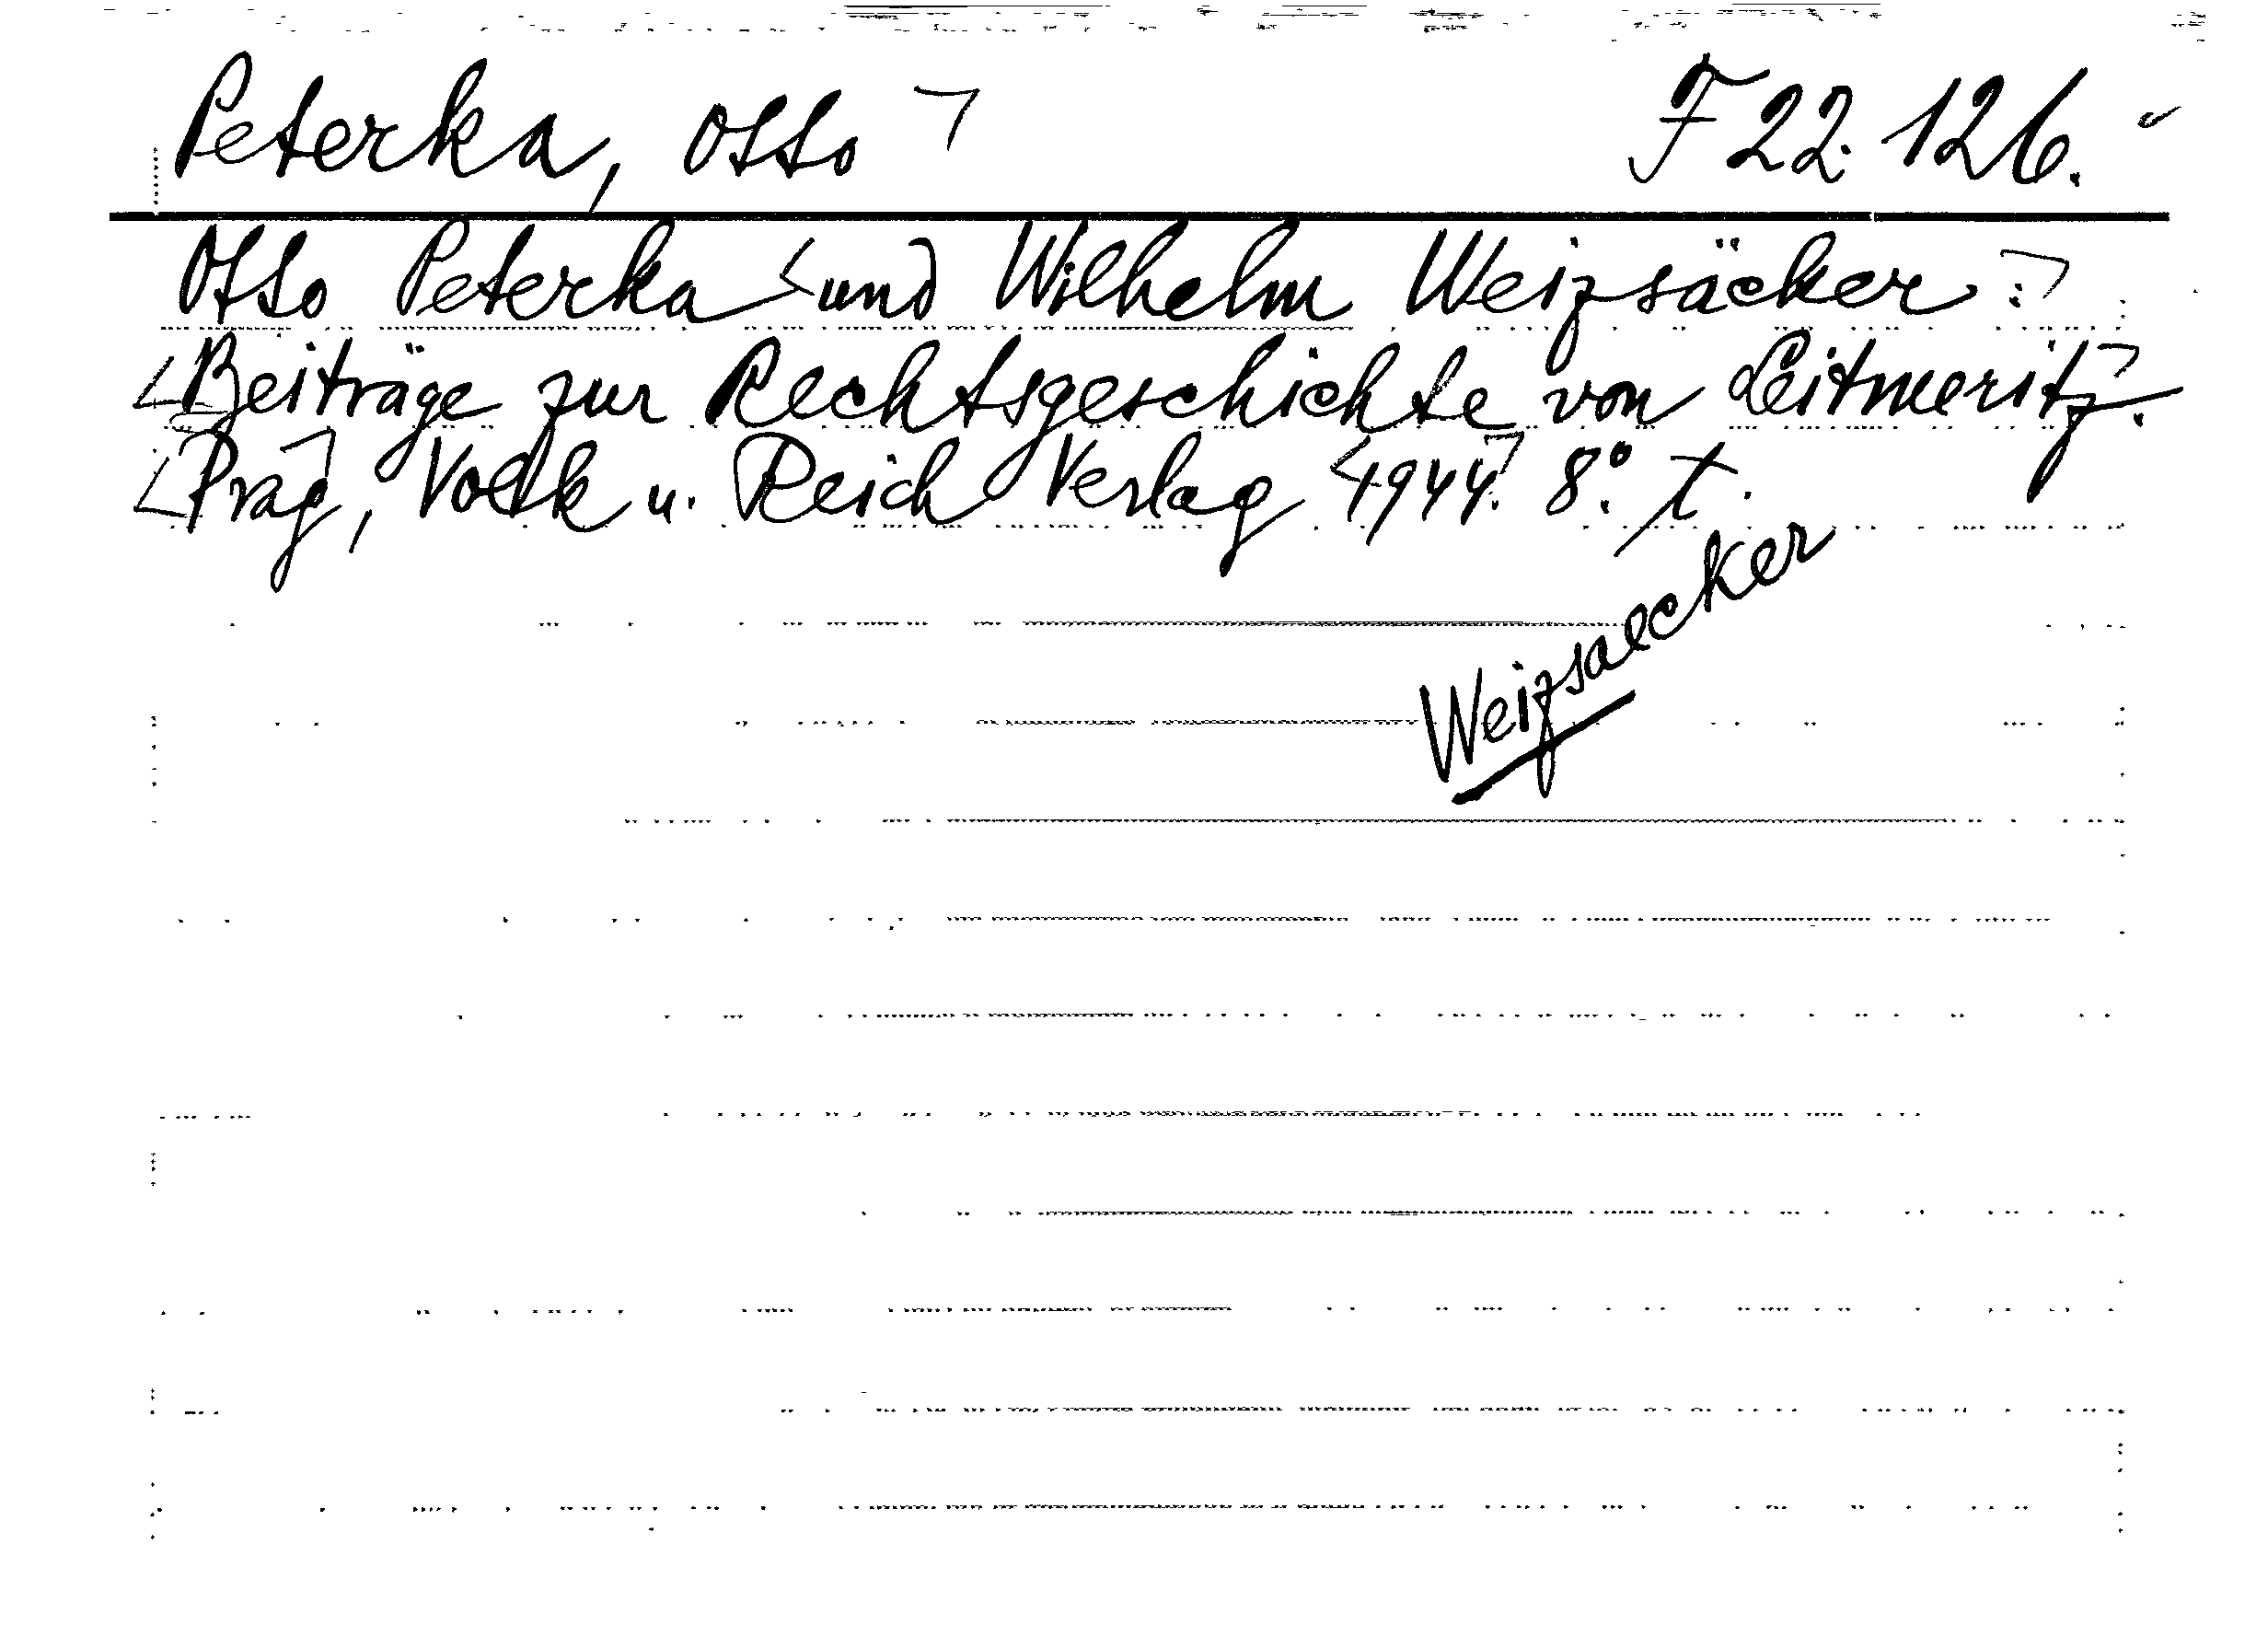 Peterka, Otto F 22.126.
Otto Peterka und Wilhelm Weizsäcker:
Beiträge zur Rechtsgeschichte von Leitmeritz.
Prag, Volk u. Reich Verlag 1944. 8°.
Weizsaecker